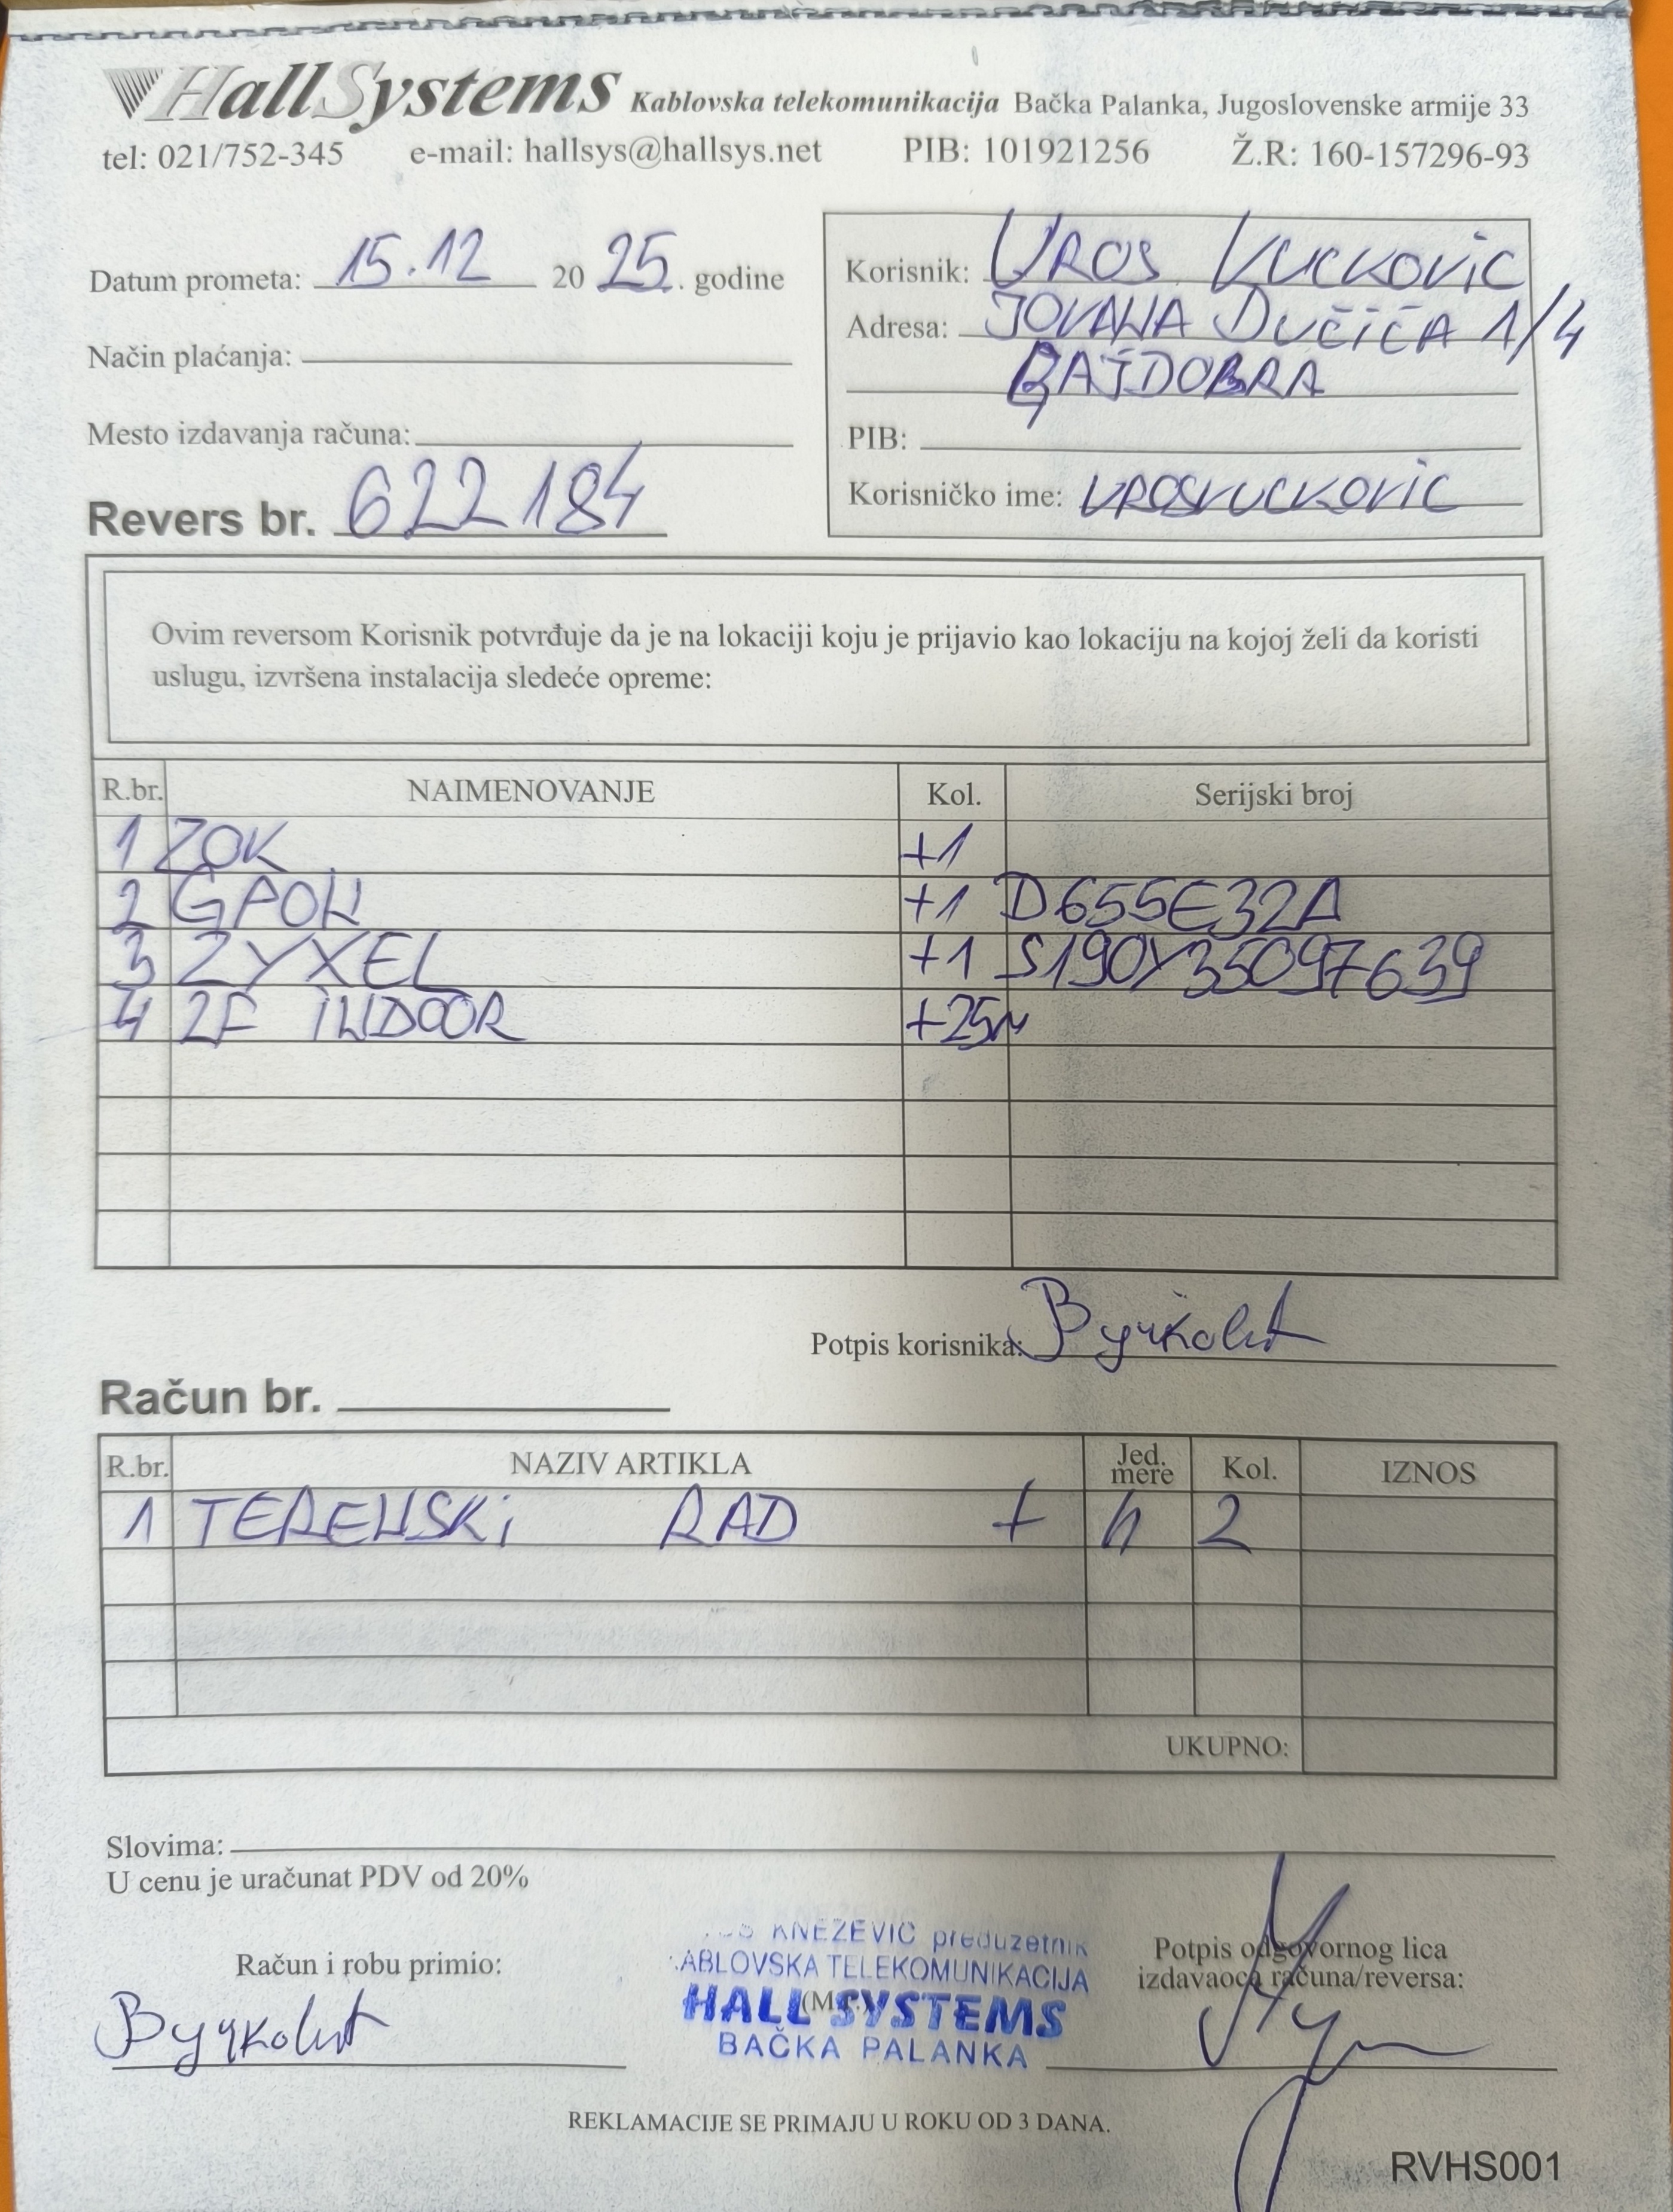 HallSystems Kablovska telekomunikacija Bačka Palanka, Jugoslovenske armije 33
tel: 021/752-345 e-mail: hallsys@hallsys.net PIB: 101921256 Ž.R: 160-157296-93
Datum prometa: 15.12 2025. godine
Način plaćanja:
Mesto izdavanja računa:
Revers br. 622184
Korisnik: UROS VUCKOVIC
Adresa: JOVANA DUČIĆA 1/4
GAJDOBRA
PIB:
Korisničko ime: UROSVUCKOVIC
Ovim reversom Korisnik potvrđuje da je na lokaciji koju je prijavio kao lokaciju na kojoj želi da koristi
uslugu, izvršena instalacija sledeće opreme:
R.br. NAIMENOVANJE Kol. Serijski broj
1 ZOK +1
2 GPON +1 D655E32A
3 ZYXEL +1 S190Y35097639
4 2F INDOOR +25m
Potpis korisnika: Вучковић
Račun br.
R.br. NAZIV ARTIKLA Jed. mere Kol. IZNOS
1 TERENSKI RAD + h 2
UKUPNO:
Slovima:
U cenu je uračunat PDV od 20%
Račun i robu primio:
Вучковић
KNEŽEVIĆ preduzetnik
ABLOVSKA TELEKOMUNIKACIJA
HALL SYSTEMS
BAČKA PALANKA
Potpis odgovornog lica
izdavaoca računa/reversa:
REKLAMACIJE SE PRIMAJU U ROKU OD 3 DANA.
RVHS001